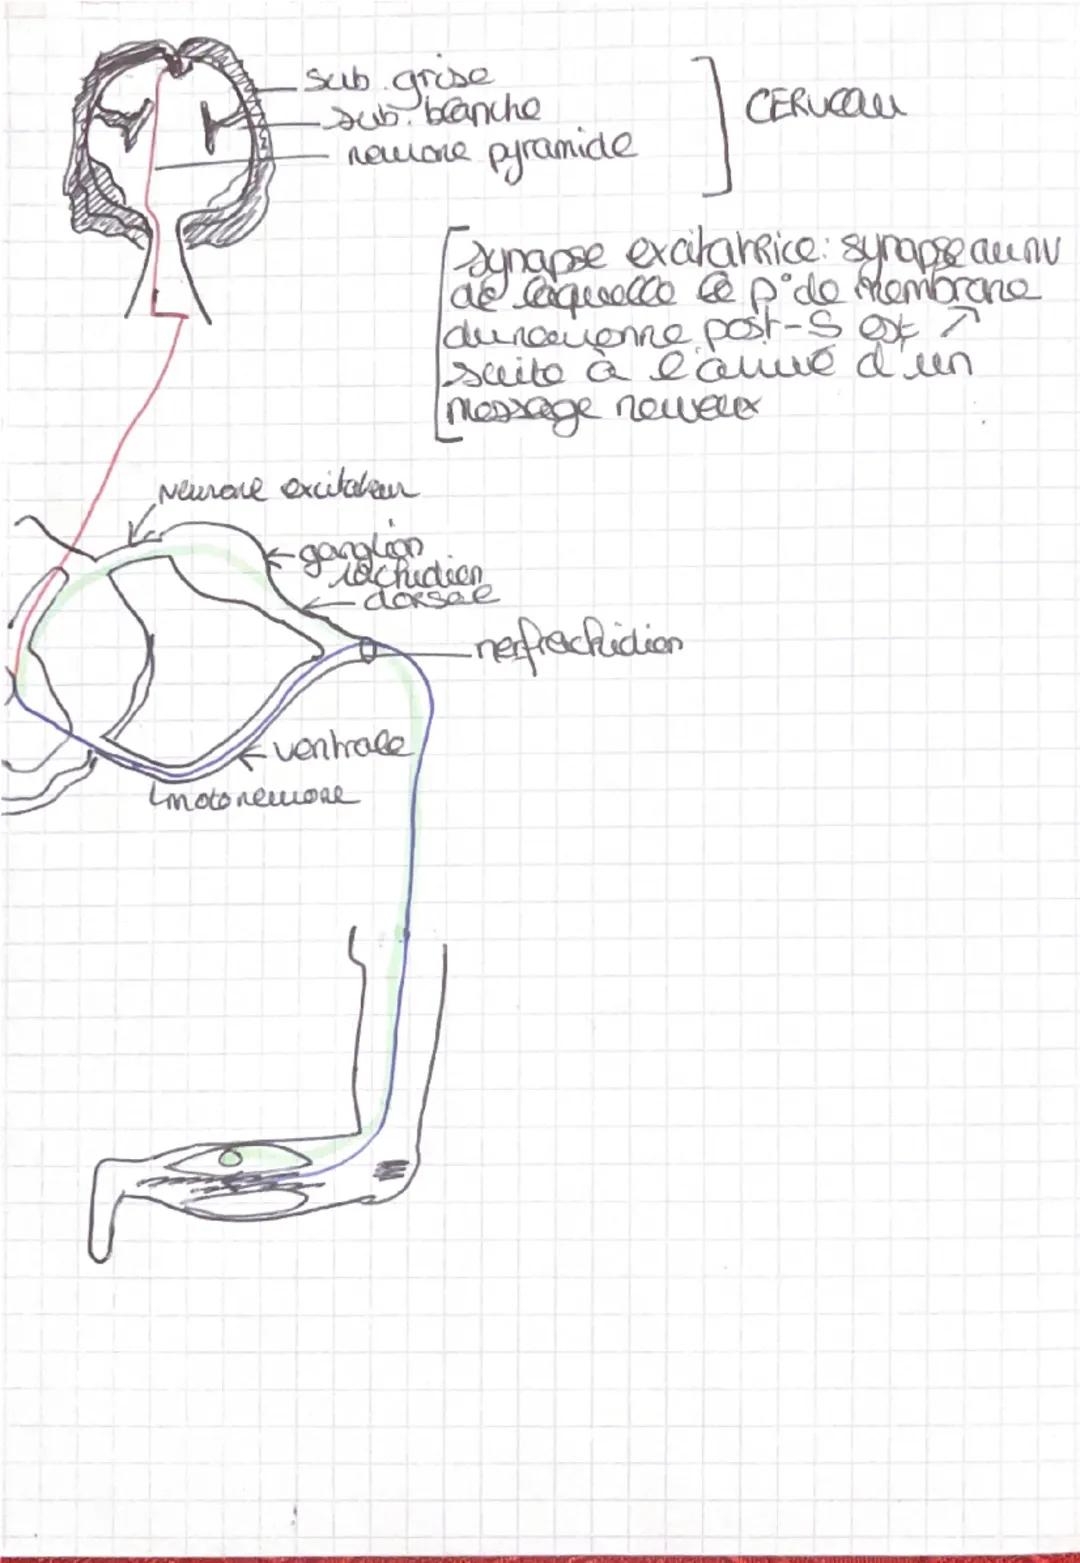 sub. grise
sub. blanche
neurone pyramide
CERVEAU
synapse excitatrice: synapse au nv
de laquelle le p° de membrane
du neuronne post-S est ↗
suite à l'arrivé d'un
message neuveux
Neurone excitateur
ganglion
rachidien
dorsale
nerf rachidien
ventrale
motoneurone